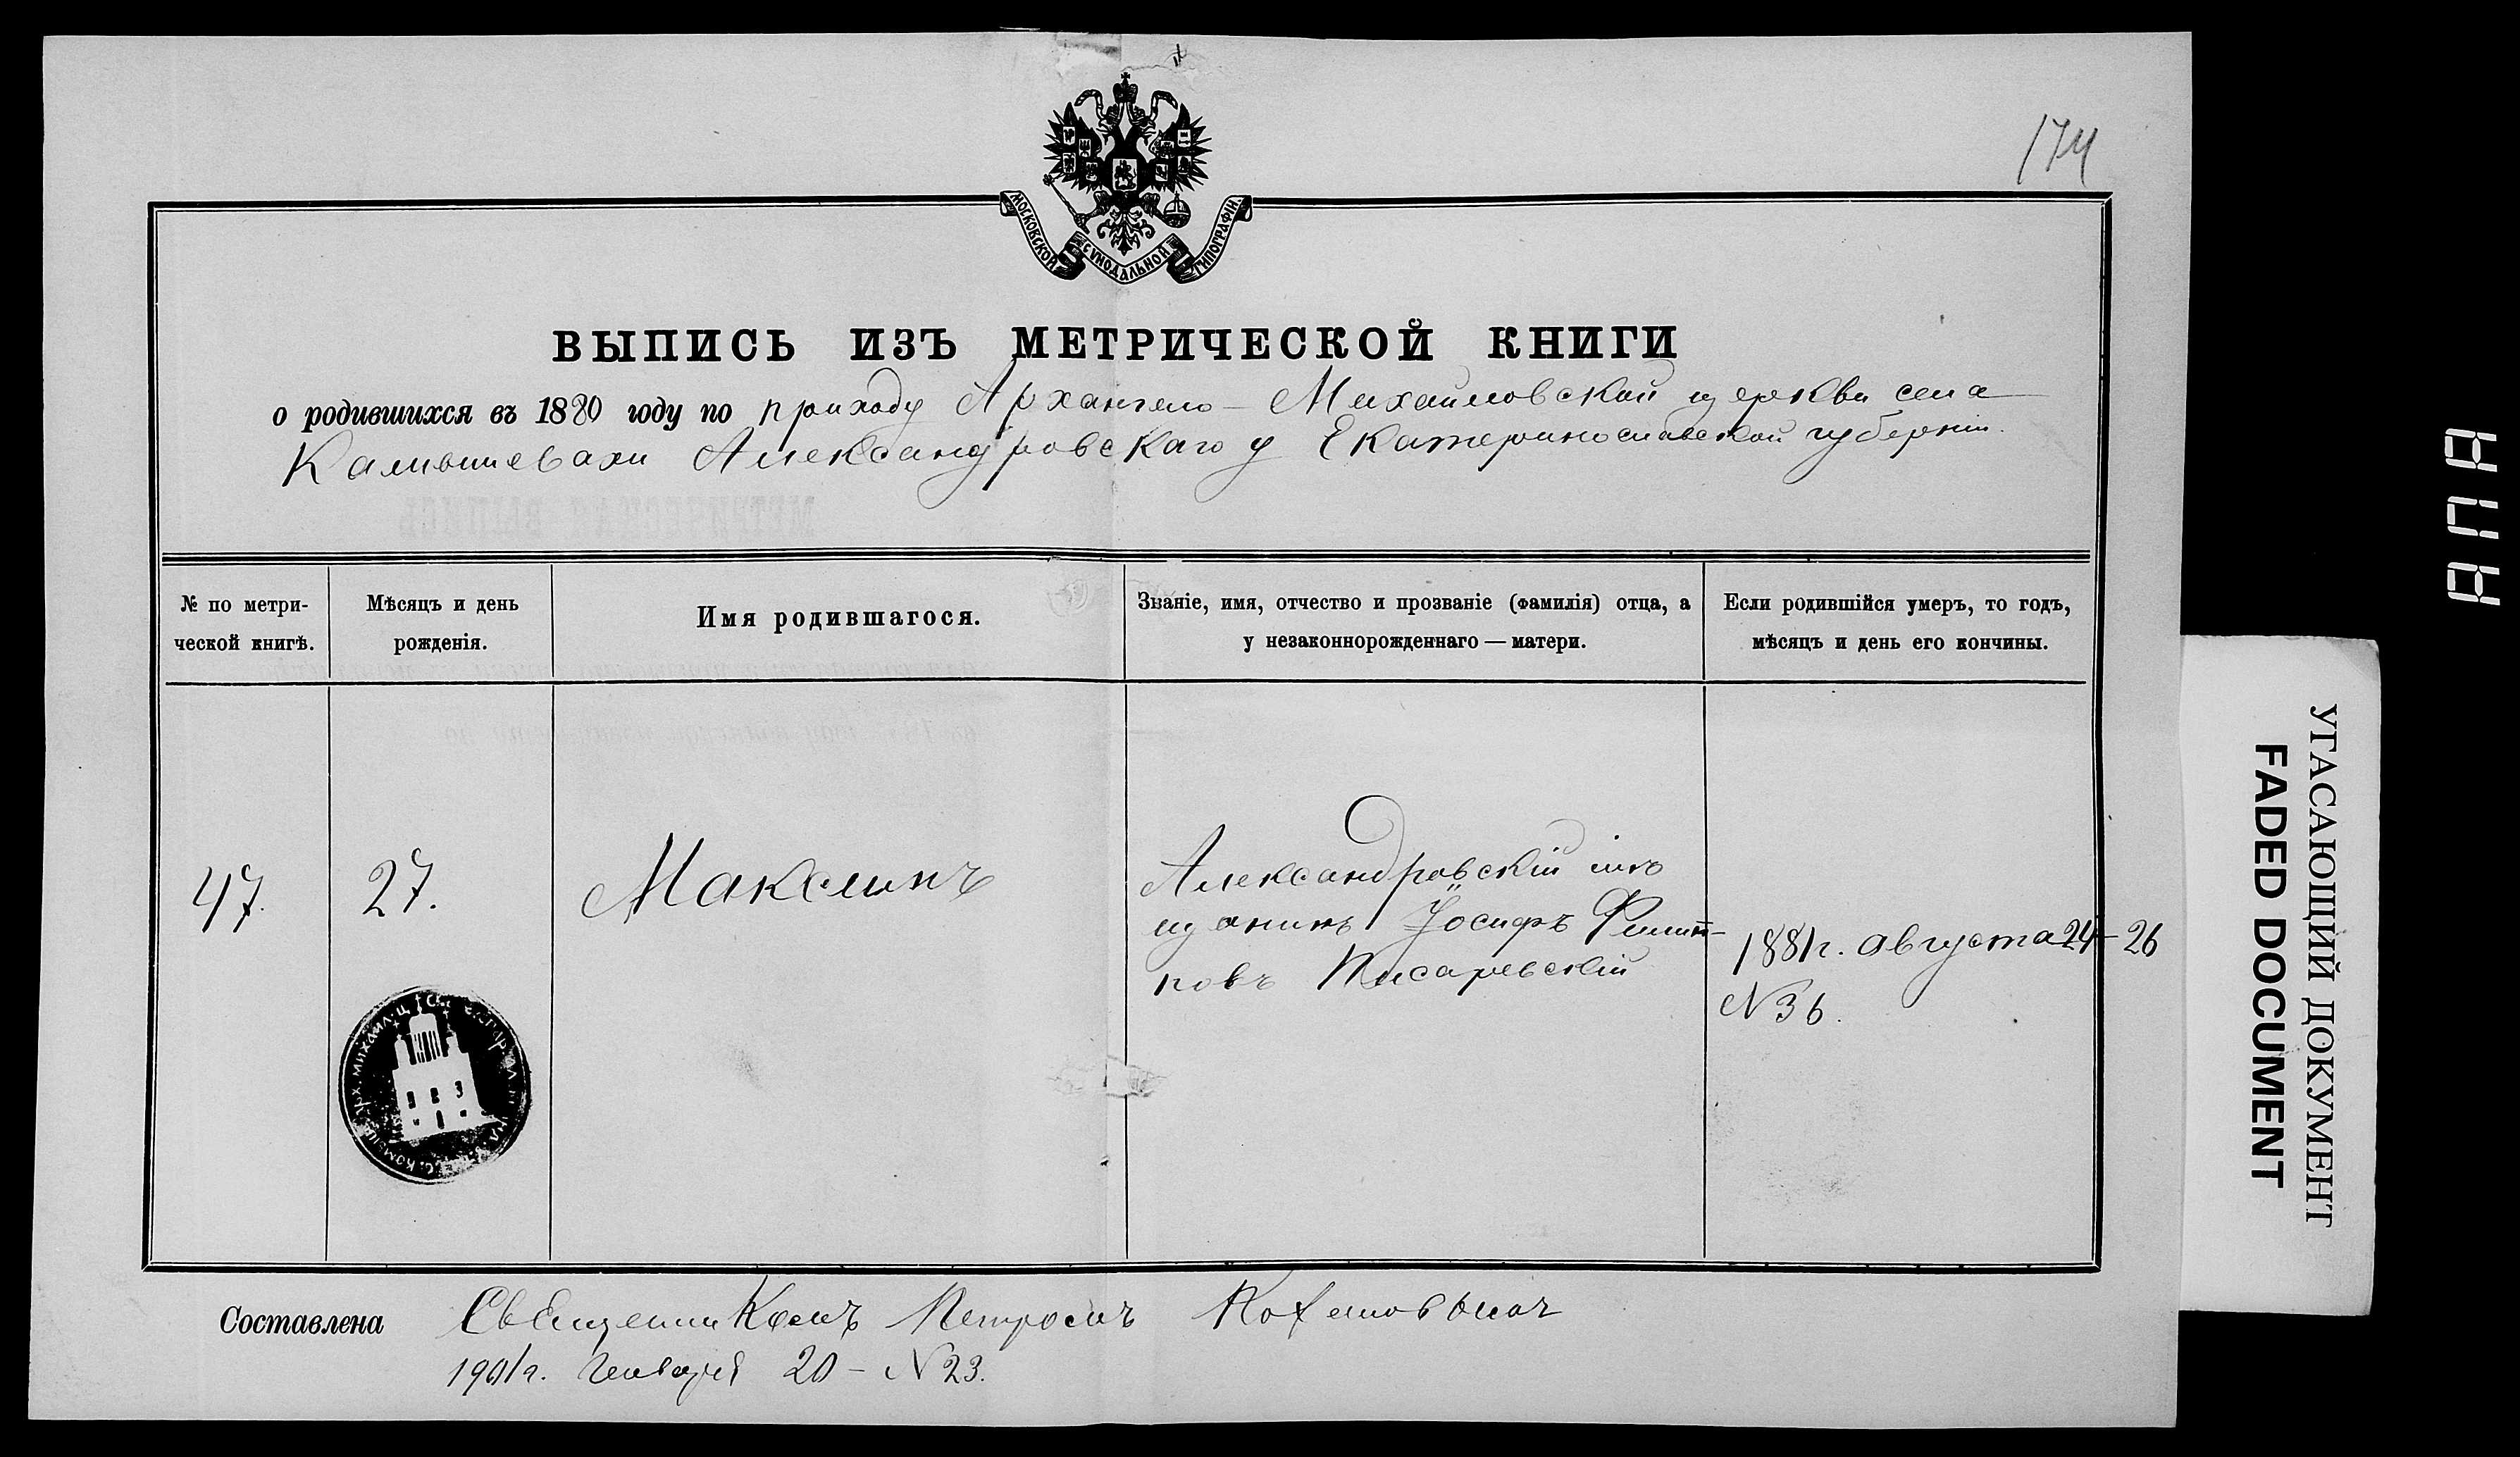 174
МОСКОВСКОЙ СѴНОДАЛЬНОЙ ТИПОГРАФІИ
ВЫПИСЬ ИЗЪ МЕТРИЧЕСКОЙ КНИГИ
о родившихся въ 1880 году по приходу Архангело-Михайловской церкви села
Камышевахи Александровскаго у Екатеринославской губерніи.
№ по метри-
ческой книгѣ.
Мѣсяцъ и день
рожденія.
Имя родившагося.
Званіе, имя, отчество и прозваніе (фамилія) отца, а
у незаконнорожденнаго — матери.
Если родившійся умеръ, то годъ,
мѣсяцъ и день его кончины.
47.
27.
Максимъ
Александровскій мѣ
щанинъ Іосифъ Филип-
повъ Писаревскій
1881г. августа 24-26
N 36.
Составлена Священникомъ Петромъ
1901г. Января 20 - N 23.
УГАСАЮЩИЙ ДОКУМЕНТ
FADED DOCUMENT